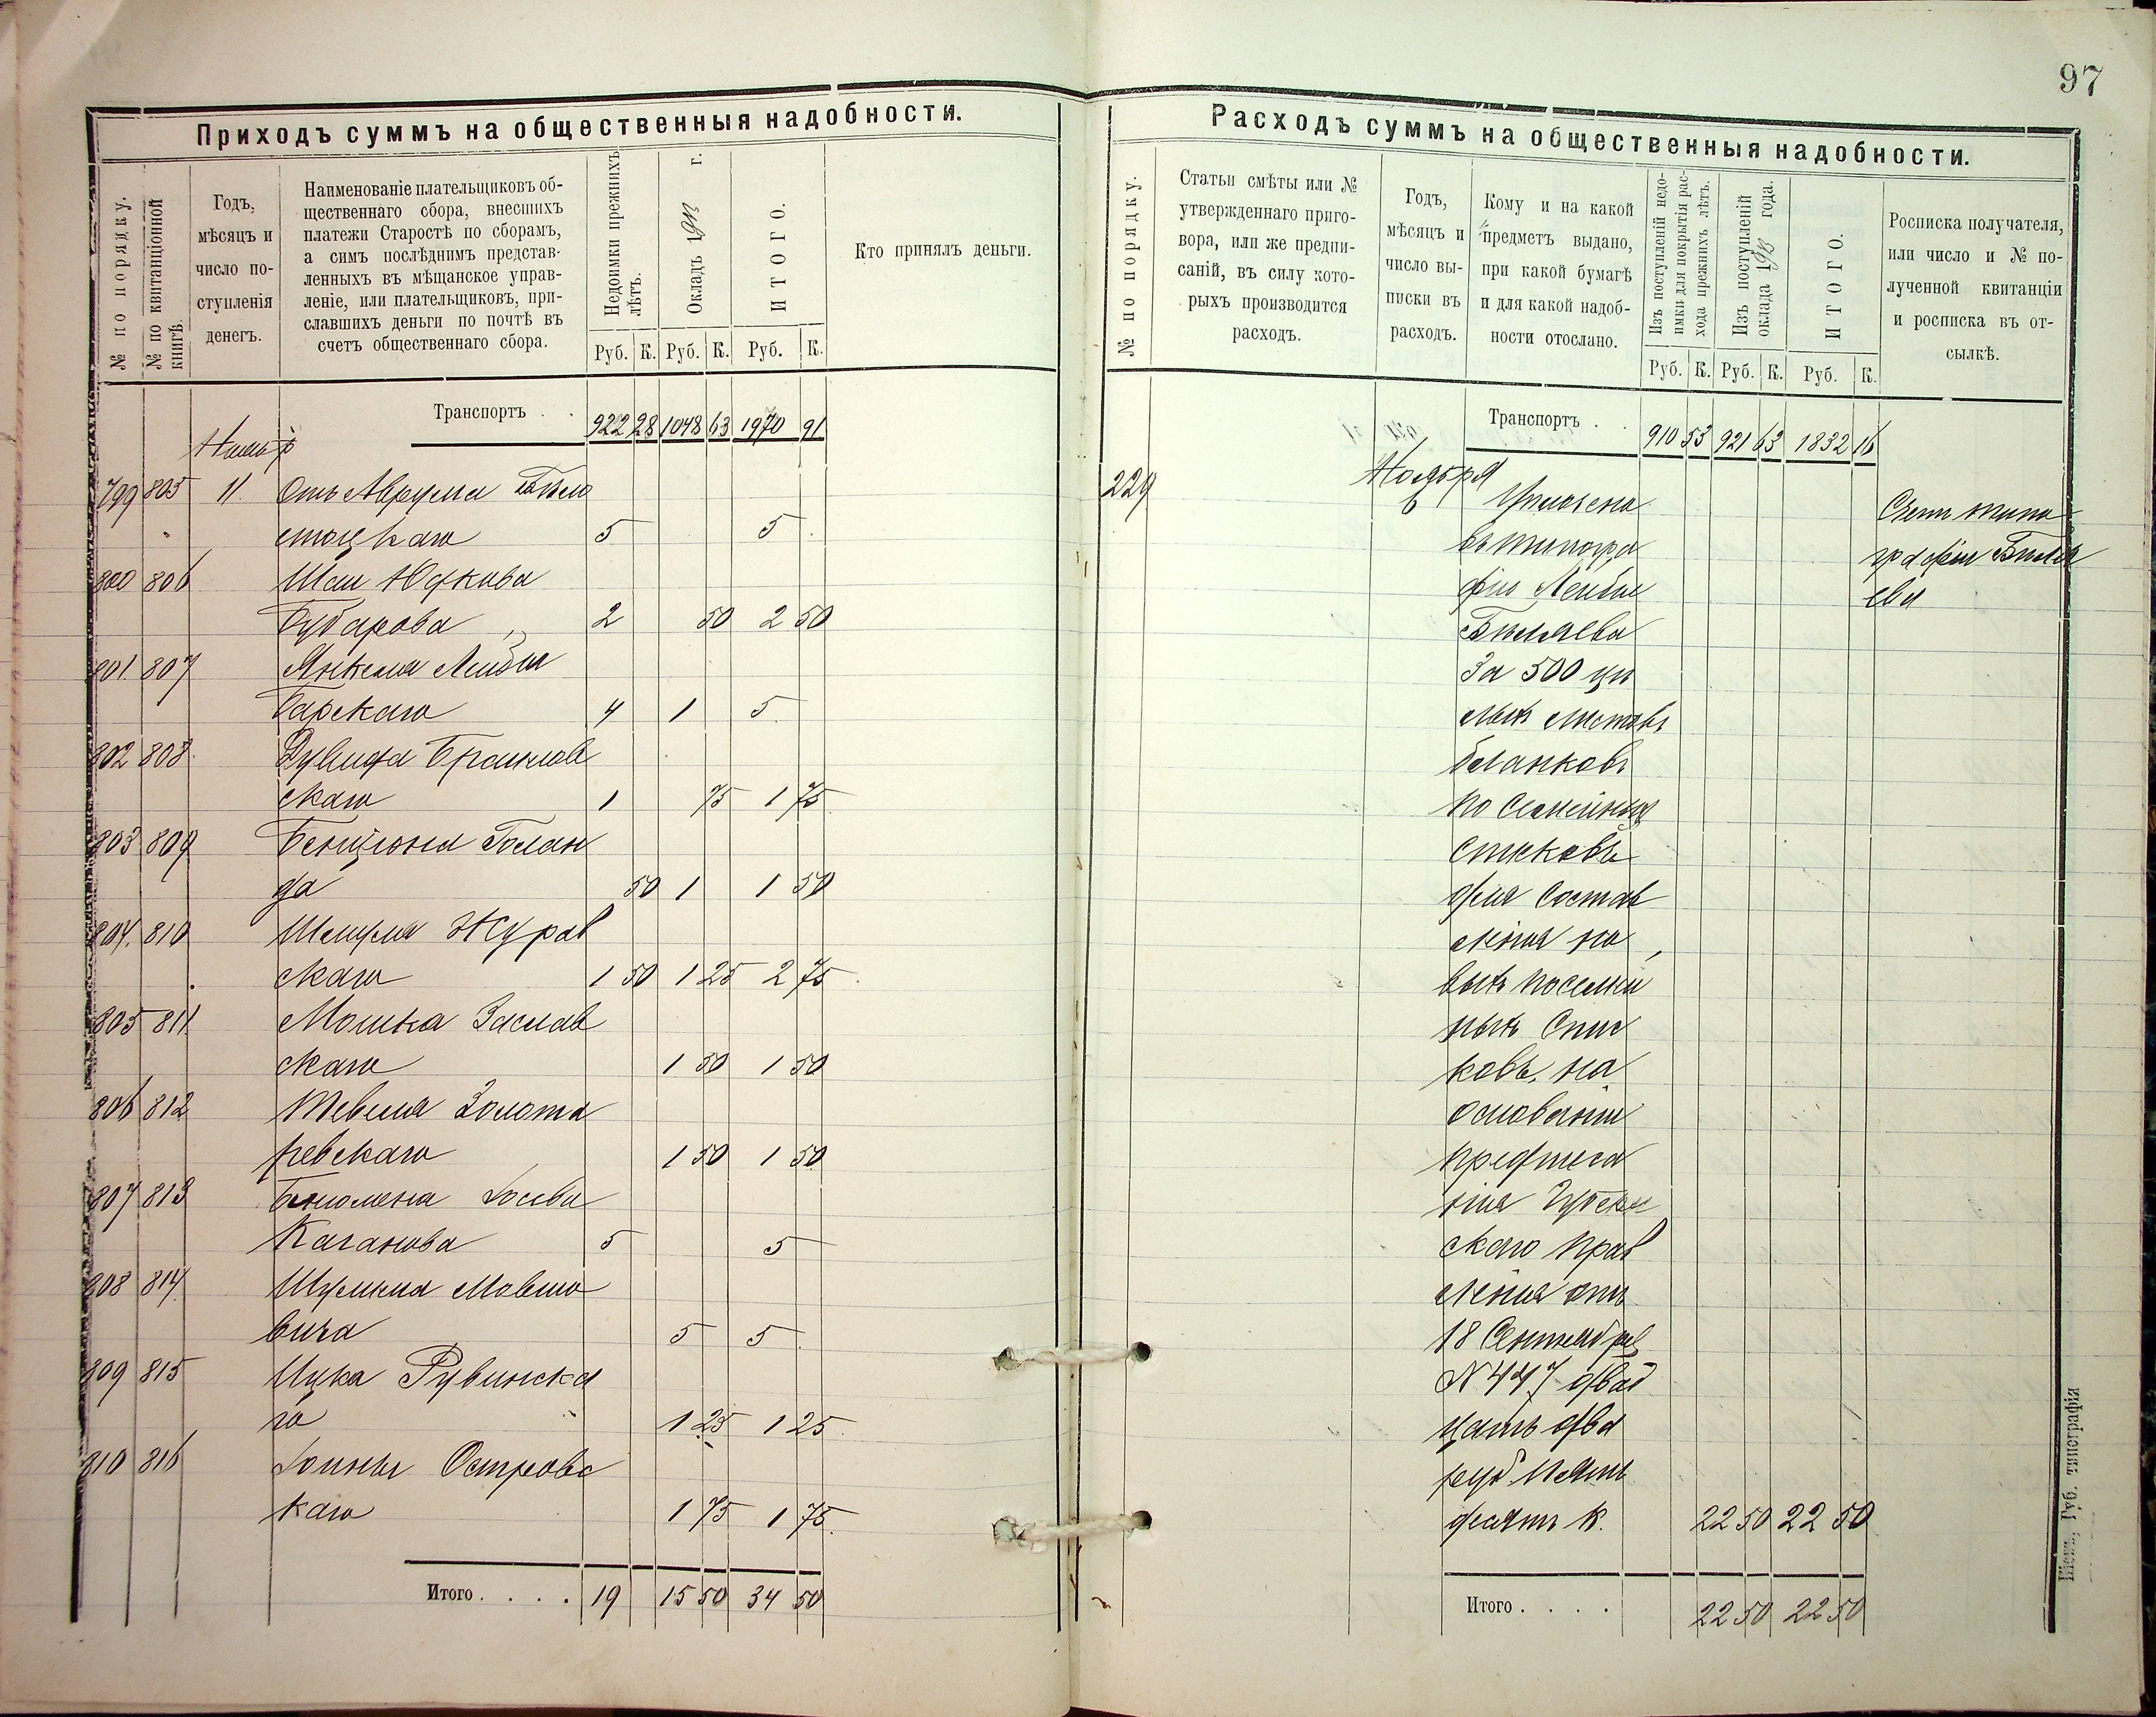 97
Приходъ суммъ на общественныя надобности.
№ по порядку.
№ по квитанціонной книгѣ.
Годъ,
мѣсяцъ и
число по-
ступленія
денегъ.
Наименованіе плательщиковъ об-
щественнаго сбора, внесшихъ
платежи Старостѣ по сборамъ,
а симъ послѣднимъ представ-
ленныхъ въ мѣщанское управ-
леніе, или плательщиковъ, при-
славшихъ деньги по почтѣ въ
счетъ общественнаго сбора.
Недоимки прежнихъ
лѣтъ.
Окладъ г.
ИТОГО.
Кто принялъ деньги.
Руб. К. Руб. К. Руб. К.
Транспортъ . . 922 28 1048 63 1970 91
799 805 11. Отъ Аврума Бѣло
стоцкаго 5 5
800 806 Шаи Юдкова
Бубарова 2 50 2 50
801 807 Янкеля Лейбы
Барскаго 4 1 5
802 808 Дувида Браилов
скаго 1 75 1 75
803 809 Бенціона Голан
да 50 1 1 50
804. 810 Шмуля Журав
скаго 1 50 1 25 2 75
805 811 Мошка Заслав
скаго 1 50 1 50
806 812 Тевеля Золота
ревскаго 1 50 1 50
807 813 Іосева
Каганова 5 5
808 814 Шулима Мовшо
вича 5 5
809 815 Ицка Рувинска
го 1 25 1 25
810 816 Островс
каго 1 75 1 75
Итого . . . . 19 15 50 34 50
Расходъ суммъ на общественныя надобности.
№ по порядку.
Статьи смѣты или №
утвержденнаго приго-
вора, или же предпи-
саній, въ силу кото-
рыхъ производится
расходъ.
Годъ,
мѣсяцъ и
число вы-
писки въ
расходъ.
Кому и на какой
предметъ выдано,
при какой бумагѣ
и для какой надоб-
ности отослано.
Изъ поступленій недо-
имки для покрытія рас-
хода прежнихъ лѣтъ.
Изъ поступленій
оклада года.
ИТОГО.
Росписка получателя,
или число и № по-
лученной квитанціи
и росписка въ от-
сылкѣ.
Руб. К. Руб. К. Руб. К.
Транспортъ . . 910 53 921 63 1832 16
Ноября
229 6 Уплочено
въ типогра
фію Лейбы
Биляева
За 500 цѣ
лыхъ листовъ
бланковъ
по Семейныхъ
Списковъ
для состав
ленія но
выхъ посемей
ныхъ Спис
ковъ, на
основаніи
предписа
нія Губерн
скаго Прав
ленія отъ
18 Сентября
N 447 двад
цать два
руб. пять
десятъ к. 22 50 22 50
Счетъ типо
графіи Биля
ева
Итого . . . . 22 50 22 50
Кіевъ, Губ. типографія